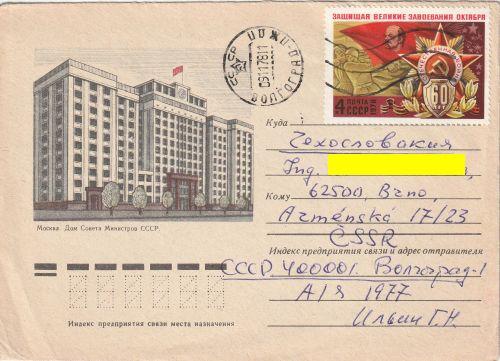 ЗАЩИЩАЯ ВЕЛИКИЕ ЗАВОЕВАНИЯ ОКТЯБРЯ
60 ЛЕТ
4 ПОЧТА
СССР 1978
ВОЛГОГРАД
Куда
Чехословакия
Ing.
Кому
62500, Brno,
Arménská 17/23
ČSSR
Москва. Дом Совета Министров СССР.
Индекс предприятия связи и адрес отправителя
СССР 400001. Волгоград-1
А/Я 1977
Ильин Г.Н.
Индекс предприятия связи места назначения